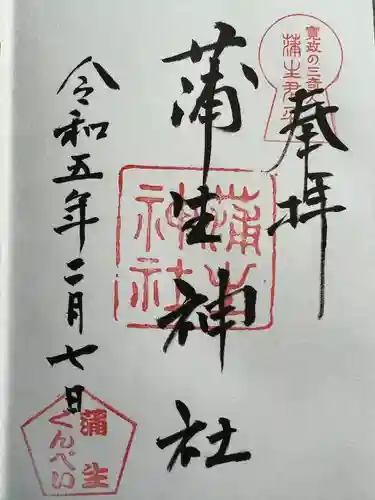 寛政の三奇人
蒲生君平
奉拝
蒲生神社
蒲生
神社
令和五年二月七日
蒲生
くんぺい